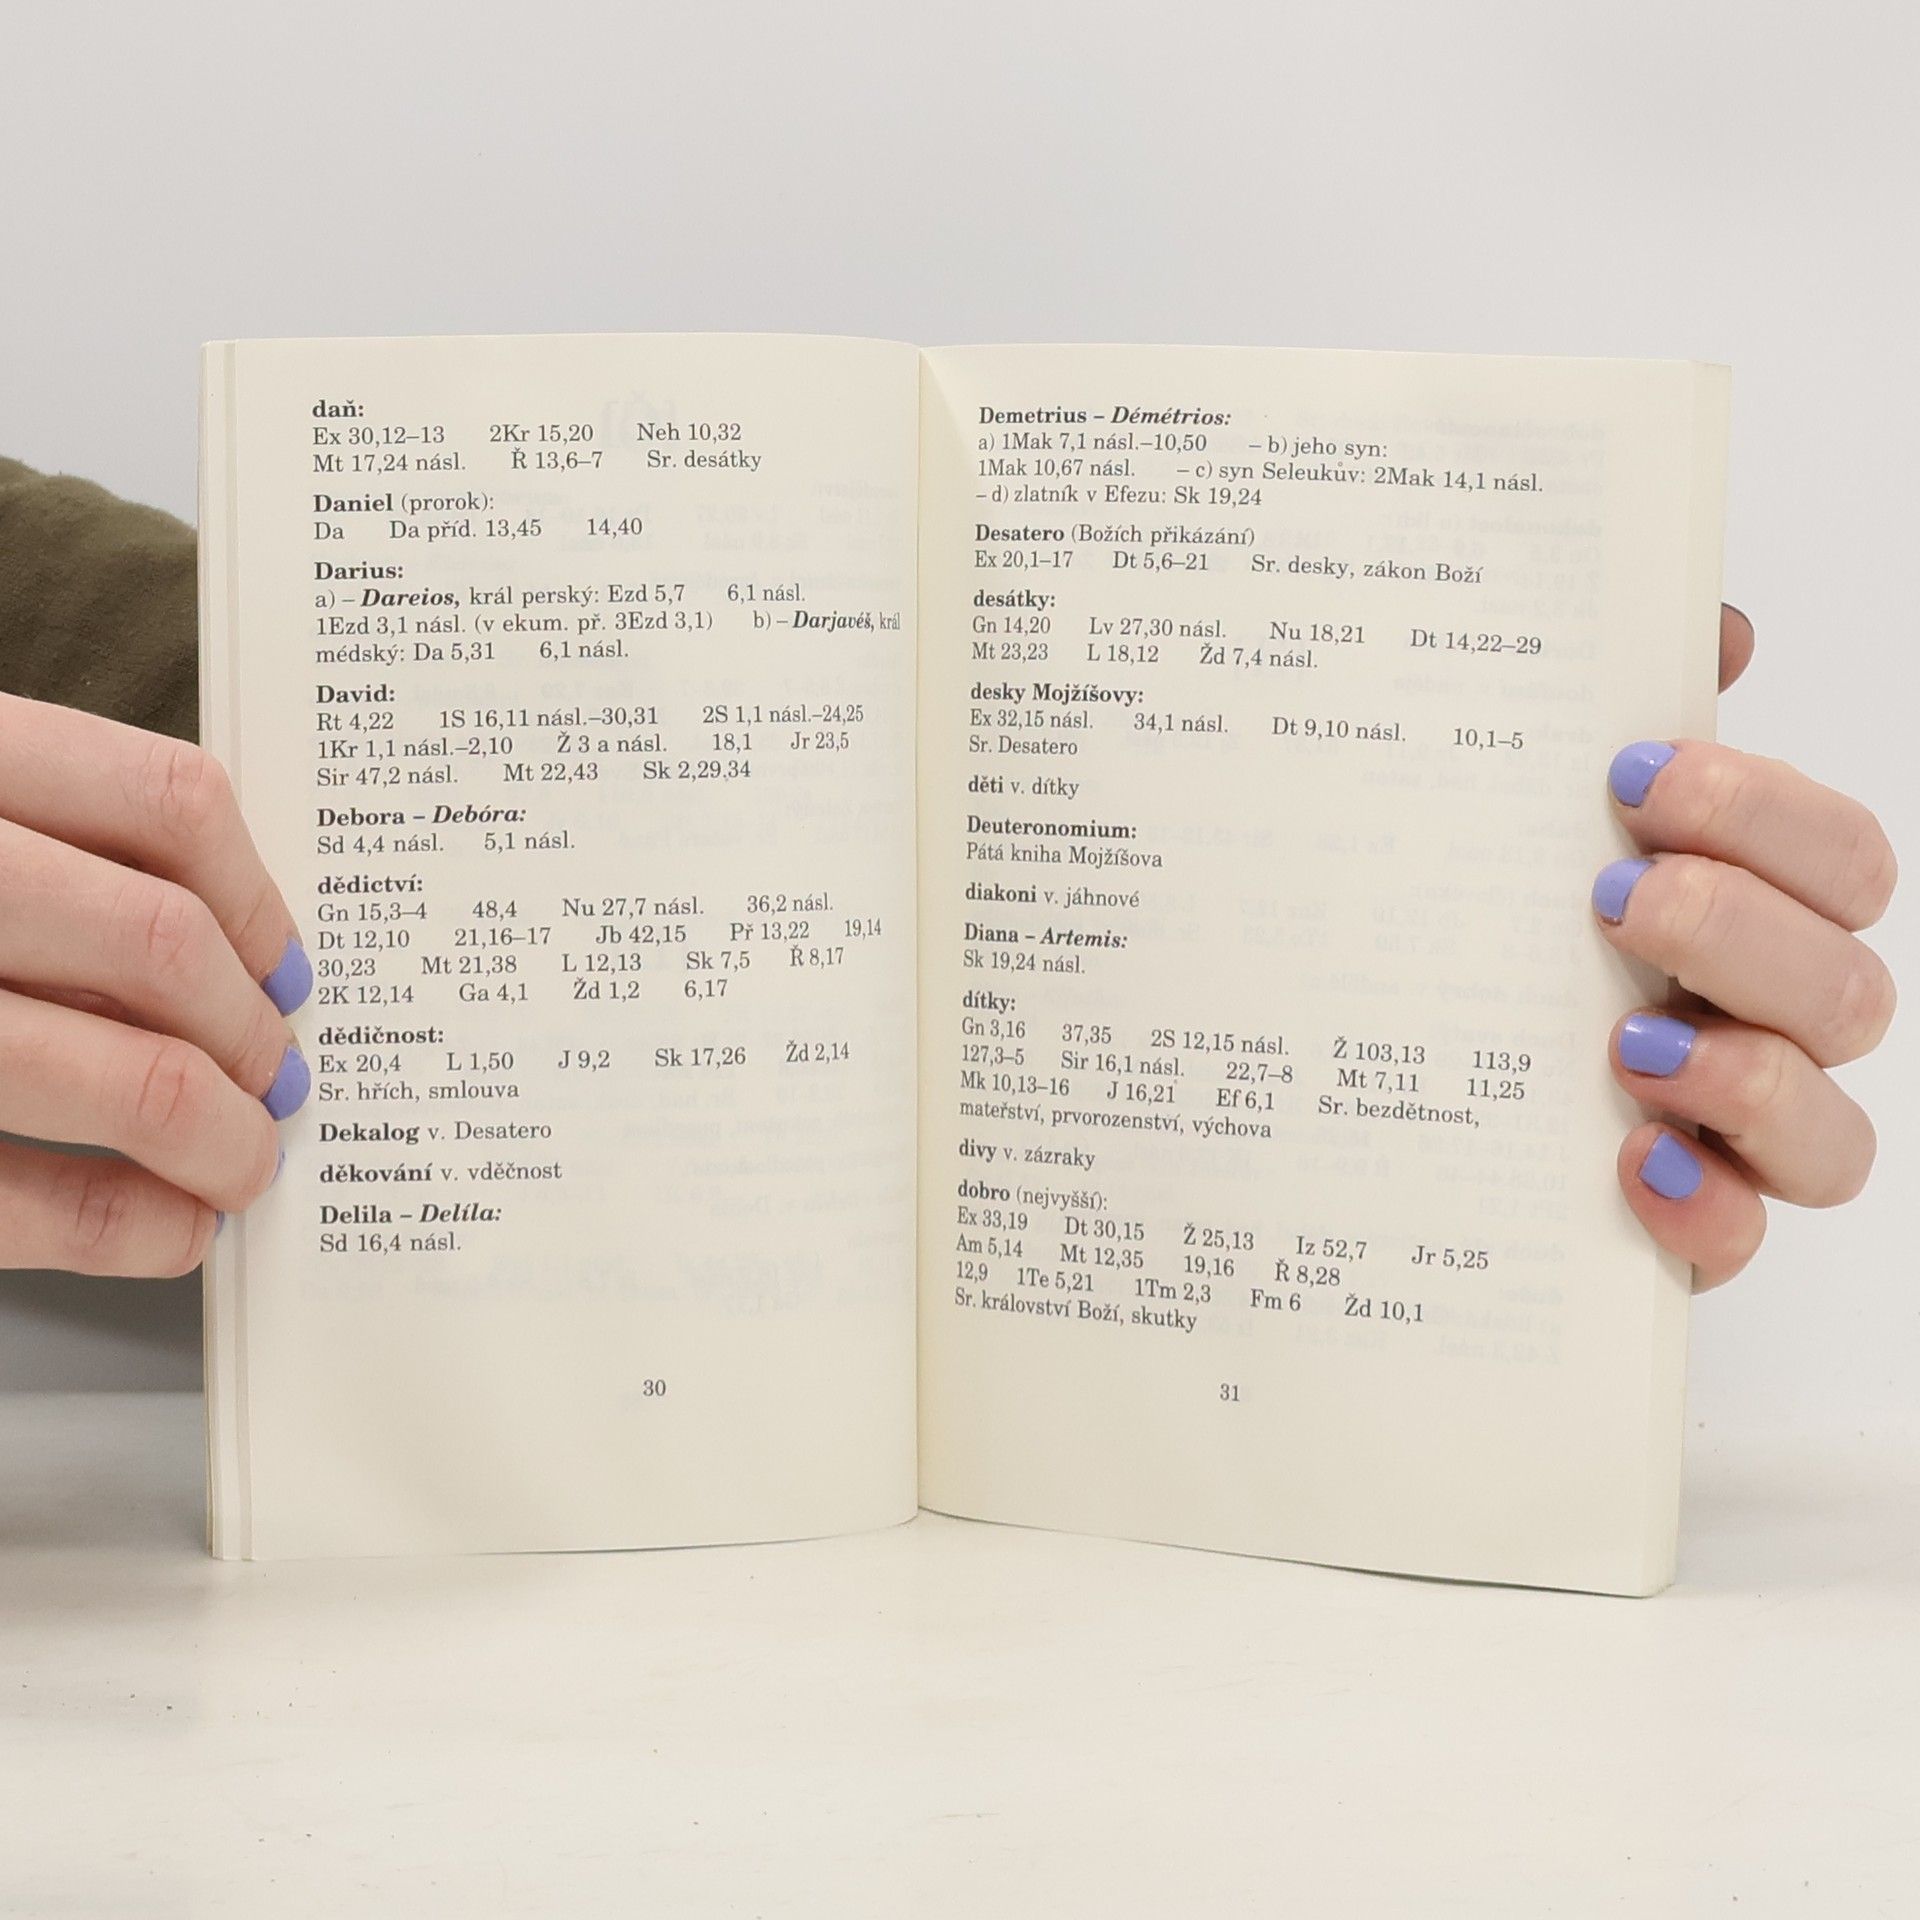 daň:
Ex 30,12–13 2Kr 15,20 Neh 10,32
Mt 17,24 násl. Ř 13,6–7 Sr. desátky
Daniel (prorok):
Da Da příd. 13,45 14,40
Darius:
a) – Dareios, král perský: Ezd 5,7 6,1 násl.
1Ezd 3,1 násl. (v ekum. př. 3Ezd 3,1) b) – Darjavéš, král
médský: Da 5,31 6,1 násl.
David:
Rt 4,22 1S 16,11 násl.–30,31 2S 1,1 násl.–24,25
1Kr 1,1 násl.–2,10 Ž 3 a násl. 18,1 Jr 23,5
Sir 47,2 násl. Mt 22,43 Sk 2,29.34
Debora – Debóra:
Sd 4,4 násl. 5,1 násl.
dědictví:
Gn 15,3–4 48,4 Nu 27,7 násl. 36,2 násl.
Dt 12,10 21,16–17 Jb 42,15 Př 13,22 19,14
30,23 Mt 21,38 L 12,13 Sk 7,5 Ř 8,17
2K 12,14 Ga 4,1 Žd 1,2 6,17
dědičnost:
Ex 20,4 L 1,50 J 9,2 Sk 17,26 Žd 2,14
Sr. hřích, smlouva
Dekalog v. Desatero
děkování v. vděčnost
Delila – Delíla:
Sd 16,4 násl.
30
Demetrius – Démétrios:
a) 1Mak 7,1 násl.–10,50 – b) jeho syn:
1Mak 10,67 násl. – c) syn Seleukův: 2Mak 14,1 násl.
– d) zlatník v Efezu: Sk 19,24
Desatero (Božích přikázání)
Ex 20,1–17 Dt 5,6–21 Sr. desky, zákon Boží
desátky:
Gn 14,20 Lv 27,30 násl. Nu 18,21 Dt 14,22–29
Mt 23,23 L 18,12 Žd 7,4 násl.
desky Mojžíšovy:
Ex 32,15 násl. 34,1 násl. Dt 9,10 násl. 10,1–5
Sr. Desatero
děti v. dítky
Deuteronomium:
Pátá kniha Mojžíšova
diakoni v. jáhnové
Diana – Artemis:
Sk 19,24 násl.
dítky:
Gn 3,16 37,35 2S 12,15 násl. Ž 103,13 113,9
127,3–5 Sir 16,1 násl. 22,7–8 Mt 7,11 11,25
Mk 10,13–16 J 16,21 Ef 6,1 Sr. bezdětnost,
mateřství, prvorozenství, výchova
divy v. zázraky
dobro (nejvyšší):
Ex 33,19 Dt 30,15 Ž 25,13 Iz 52,7 Jr 5,25
Am 5,14 Mt 12,35 19,16 Ř 8,28
12,9 1Te 5,21 1Tm 2,3 Fm 6 Žd 10,1
Sr. království Boží, skutky
31